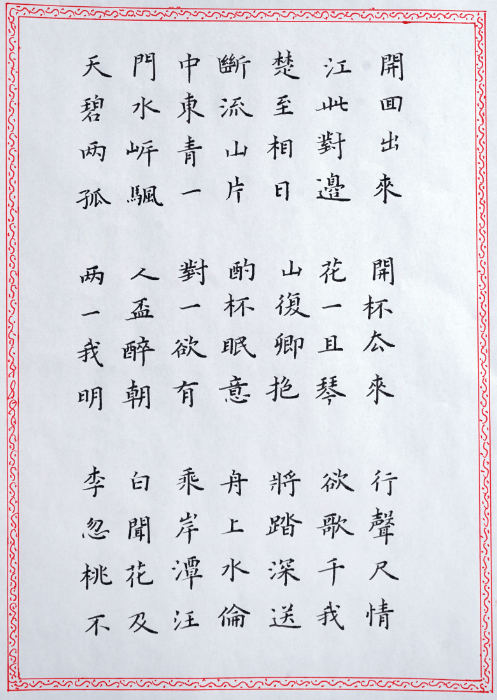 天門中斷楚江開
碧水東流至此囬
两岍青山相對出
孤颿一片日邊來
两人對酌山花開
一盃一杯復一杯
我醉欲眠卿且厺
明朝有意抱琴來
李白乘舟將欲行
忽聞岸上踏歌聲
桃花潭水深千尺
不及汪倫送我情